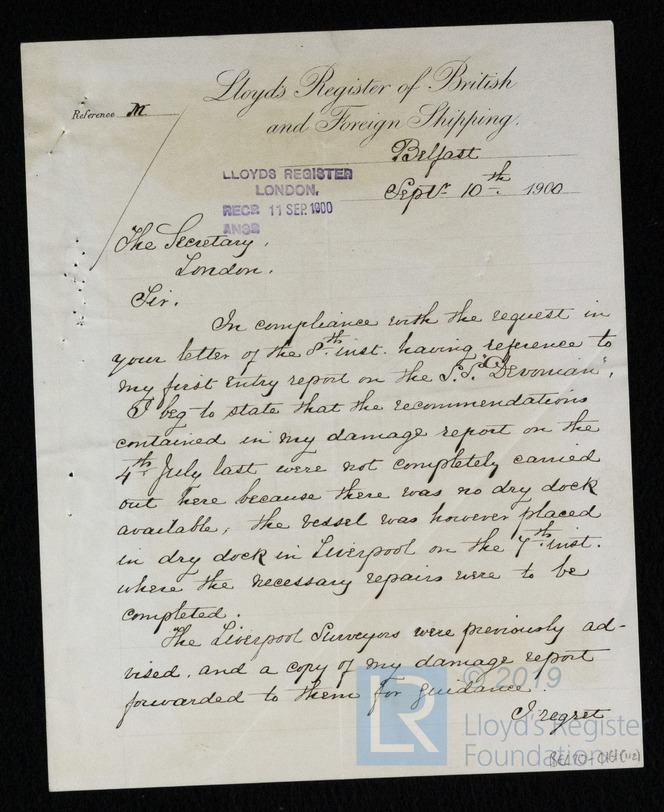 Lloyd's Register of British
and Foreign Shipping.
Reference M
Belfast
Septr 10th 1900
LLOYDS REGISTER
LONDON.
RECD 11 SEP. 1900
ANSD
The Secretary,
London.
Sir.
In compliance with the request in
your letter of the 8th inst. having reference to
my first entry report on the S.S. "Devonian",
I beg to state that the recommendations
contained in my damage report on the
4th July last were not completely carried
out here because there was no dry dock
available, the vessel was however placed
in dry dock in Liverpool on the 7th inst.
where the necessary repairs were to be
completed.
The Liverpool Surveyors were previously ad-
vised, and a copy of my damage report
forwarded to them for guidance.
I regret
© 2019
LR
Lloyd's Register
Foundation